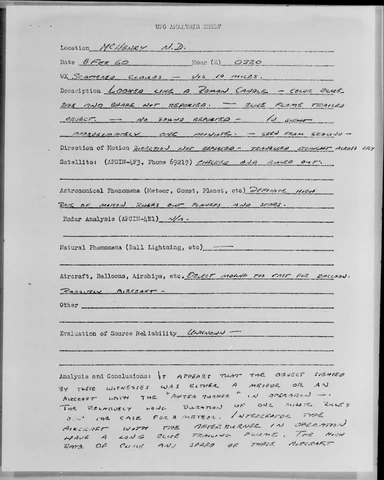 UFO ANALYSIS SHEET
Location McHENRY N.D.
Date 8 FEB 60 Hour (Z) 0320
WX SCATTERED CLOUDS - VIS 10 MILES.
Description LOOKED LIKE A ROMAN CANDLE - COLOR BLUE
SIZE AND SHAPE NOT REPORTED. - BLUE FLAME TRAILED
OBJECT. - NO SOUND REPORTED - IN SIGHT
APPROXIMATELY ONE MINUTE. - SEEN FROM GROUND -
Direction of Motion DIRECTION NOT REPORTED - TRAVELED STRAIGHT ACROSS SKY
Satellite: (AFCIN-4F3, Phone 69219) CHECKED AND RULED OUT.
Astronomical Phenomena (Meteor, Comet, Planet, etc) DEFINITE HIGH
RATE OF MOTION RULES OUT PLANETS AND STARS.
Radar Analysis (AFCIN-4E1) N/A.
Natural Phenomena (Ball Lightning, etc) -
Aircraft, Balloons, Airships, etc. OBJECT MOVING TOO FAST FOR BALLOON.
POSSIBLY AIRCRAFT -
Other
Evaluation of Source Reliability UNKNOWN -
Analysis and Conclusions: IT APPEARS THAT THE OBJECT SIGHTED
BY THESE WITNESSES WAS EITHER A METEOR OR AN
AIRCRAFT WITH THE "AFTER BURNER" IN OPERATION -
THE RELATIVELY LONG DURATION OF ONE MINUTE RULES
OUT THE CASE FOR A METEOR. INTERCEPTOR TYPE
AIRCRAFT WITH THE AFTERBURNER IN OPERATION
HAVE A LONG BLUE TRAILING PLUME. THE HIGH
RATE OF CLIMB AND SPEED OF THESE AIRCRAFT